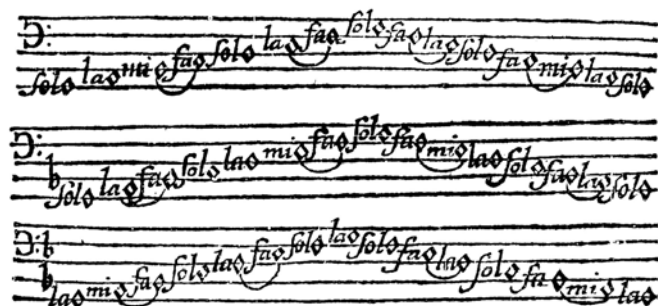 ſol la mi fa ſol la fa ſol fa la ſol fa mi la ſol
ſol la fa ſol la mi fa ſol fa mi la ſol fa la ſol
la mi fa ſol la fa ſol la ſol fa la ſol fa mi la